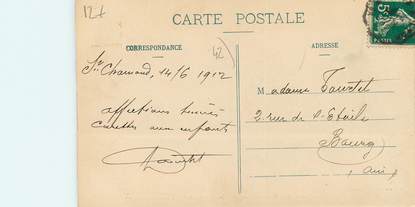 12+
CARTE POSTALE
CORRESPONDANCE
42
ADRESSE
5
St Chamond, 14/6 1912
affections
aux enfants
Madame
2 rue de l'Etoile
Bourg
Ain